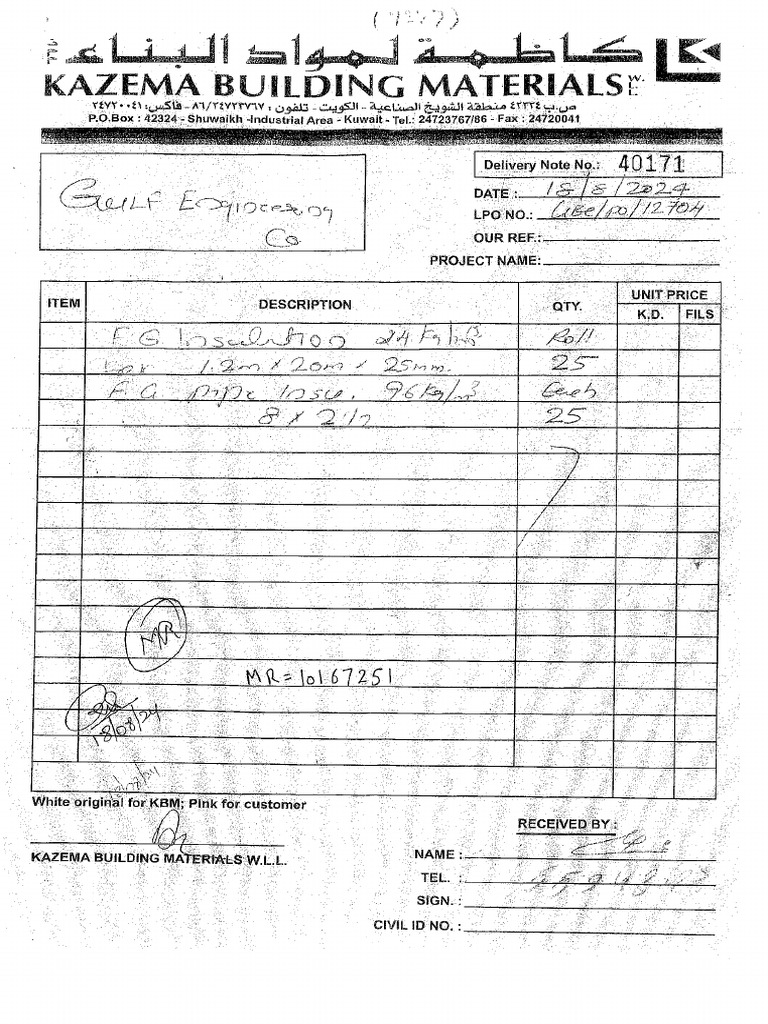 كاظمة لمواد البناء
KAZEMA BUILDING MATERIALS W.L.L.
ص.ب ٤٢٣٢٤ منطقة الشويخ الصناعية - الكويت - تلفون : ٨٦/٢٤٧٢٣٧٦٧ - فاكس: ٢٤٧٢٠٠٤١
P.O.Box : 42324 - Shuwaikh -Industrial Area - Kuwait - Tel.: 24723767/86 - Fax : 24720041
Delivery Note No.: 40171
Gulf Engineering
Co
DATE : 18/8/2024
LPO NO.: /po/12704
OUR REF.:
PROJECT NAME:
ITEM DESCRIPTION QTY. UNIT PRICE
K.D. FILS
F G Insulation 24 Kg/m3 Roll
1.2m x 20m x 25mm. 25
F G pipe Insu. 96 Kg/m3 Each
8 x 2 1/2 25
MR
MR = 10167251
18/08/24
18/08/24
White original for KBM; Pink for customer
RECEIVED BY :
KAZEMA BUILDING MATERIALS W.L.L.
NAME :
TEL. :
SIGN. :
CIVIL ID NO. :